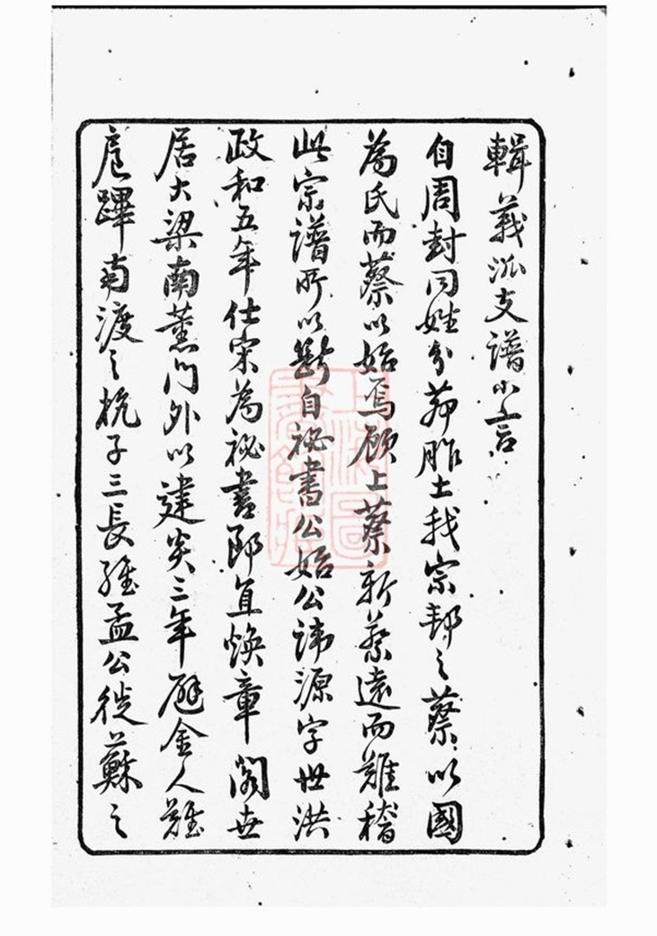 輯義派支譜小言
自周封同姓分茅胙土我宗邦之蔡以國
為氏而蔡以始焉顧上蔡新蔡遠而難稽
此宗譜所以斷自祕書公始公諱源字世洪
政和五年仕宋為祕書郎直煥章閣世
居大梁南薰門外以建炎三年避金人難
扈蹕南渡之杭子三長維孟公徙蘇之
上海圖書館藏